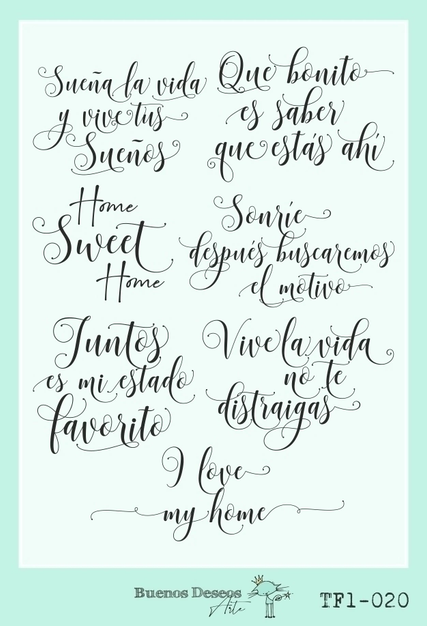 Sueña la vida
y vive tus
Sueños
Que bonito
es saber
que estás ahí
Home
Sweet
Home
Sonríe
después buscaremos
el motivo
Juntos
es mi estado
favorito
Vive la vida
no te
distraigas
I love
my home
Buenos Deseos
Arte
TF1-020